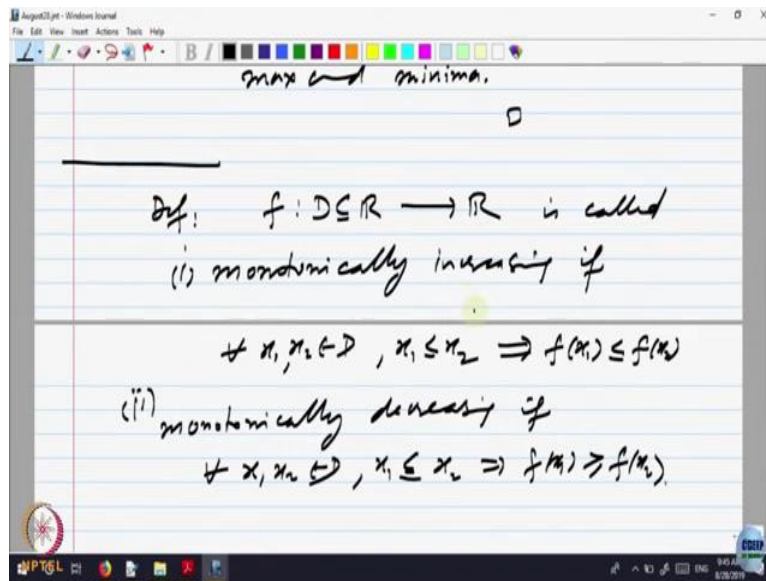 August28.jnt - Windows Journal
File Edit View Insert Actions Tools Help
B I
max and minima.
Def: f : D ⊆ ℝ → ℝ is called
(i) monotonically increasing if
∀ x₁, x₂ ∈ D, x₁ ≤ x₂ ⇒ f(x₁) ≤ f(x₂)
(ii) monotonically decreasing if
∀ x₁, x₂ ∈ D, x₁ ≤ x₂ ⇒ f(x₁) ≥ f(x₂).
NPTEL
CDEEP
ENG
9:45 AM
8/28/2019